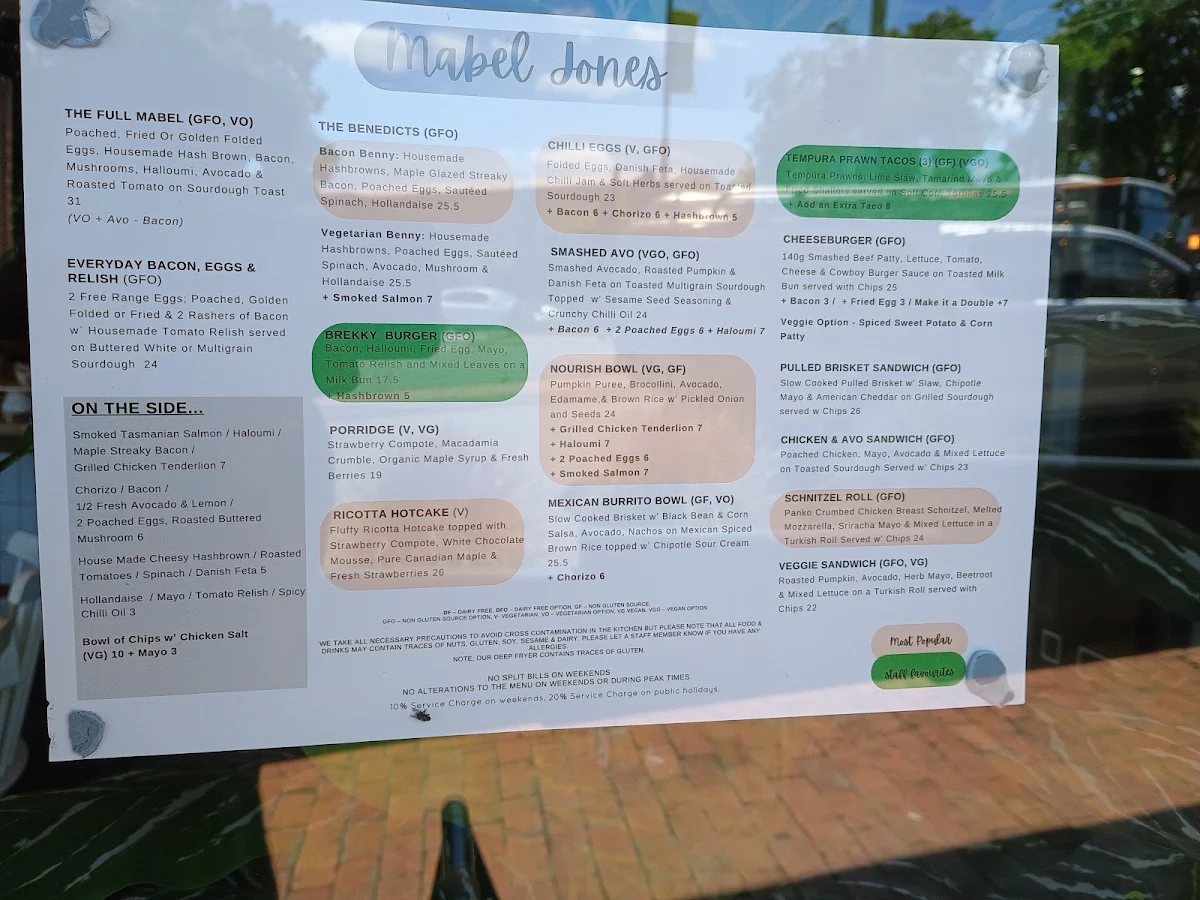 Mabel Jones
THE FULL MABEL (GFO, VO)
Poached, Fried Or Golden Folded
Eggs, Housemade Hash Brown, Bacon,
Mushrooms, Halloumi, Avocado &
Roasted Tomato on Sourdough Toast
31
(VO + Avo - Bacon)
EVERYDAY BACON, EGGS &
RELISH (GFO)
2 Free Range Eggs; Poached, Golden
Folded or Fried & 2 Rashers of Bacon
w` Housemade Tomato Relish served
on Buttered White or Multigrain
Sourdough 24
ON THE SIDE...
Smoked Tasmanian Salmon / Haloumi /
Maple Streaky Bacon /
Grilled Chicken Tenderlion 7
Chorizo / Bacon /
1/2 Fresh Avocado & Lemon /
2 Poached Eggs, Roasted Buttered
Mushroom 6
House Made Cheesy Hashbrown / Roasted
Tomatoes / Spinach / Danish Feta 5
Hollandaise / Mayo / Tomato Relish / Spicy
Chilli Oil 3
Bowl of Chips w' Chicken Salt
(VG) 10 + Mayo 3
THE BENEDICTS (GFO)
Bacon Benny: Housemade
Hashbrowns, Maple Glazed Streaky
Bacon, Poached Eggs, Sautéed
Spinach, Hollandaise 25.5
Vegetarian Benny: Housemade
Hashbrowns, Poached Eggs, Sautéed
Spinach, Avocado, Mushroom &
Hollandaise 25.5
+ Smoked Salmon 7
BREKKY BURGER (GFO)
Bacon, Halloumi, Fried Egg, Mayo,
Tomato Relish and Mixed Leaves on a
Milk Bun 17.5
+ Hashbrown 5
PORRIDGE (V, VG)
Strawberry Compote, Macadamia
Crumble, Organic Maple Syrup & Fresh
Berries 19
RICOTTA HOTCAKE (V)
Fluffy Ricotta Hotcake topped with
Strawberry Compote, White Chocolate
Mousse, Pure Canadian Maple &
Fresh Strawberries 26
CHILLI EGGS (V, GFO)
Folded Eggs, Danish Feta, Housemade
Chilli Jam & Soft Herbs served on Toasted
Sourdough 23
+ Bacon 6 + Chorizo 6 + Hashbrown 5
SMASHED AVO (VGO, GFO)
Smashed Avocado, Roasted Pumpkin &
Danish Feta on Toasted Multigrain Sourdough
Topped w' Sesame Seed Seasoning &
Crunchy Chilli Oil 24
+ Bacon 6 + 2 Poached Eggs 6 + Haloumi 7
NOURISH BOWL (VG, GF)
Pumpkin Puree, Brocollini, Avocado,
Edamame,& Brown Rice w' Pickled Onion
and Seeds 24
+ Grilled Chicken Tenderlion 7
+ Haloumi 7
+ 2 Poached Eggs 6
+ Smoked Salmon 7
MEXICAN BURRITO BOWL (GF, VO)
Slow Cooked Brisket w' Black Bean & Corn
Salsa, Avocado, Nachos on Mexican Spiced
Brown Rice topped w' Chipotle Sour Cream
25.5
+ Chorizo 6
TEMPURA PRAWN TACOS (3) (GF) (VGO)
Tempura Prawns, Lime Slaw, Tamarind Mayo &
Fried Shallots served on Soft Corn Tortillas 25.5
+ Add an Extra Taco 8
CHEESEBURGER (GFO)
140g Smashed Beef Patty, Lettuce, Tomato,
Cheese & Cowboy Burger Sauce on Toasted Milk
Bun served with Chips 25
+ Bacon 3 / + Fried Egg 3 / Make it a Double +7
Veggie Option - Spiced Sweet Potato & Corn
Patty
PULLED BRISKET SANDWICH (GFO)
Slow Cooked Pulled Brisket w' Slaw, Chipotle
Mayo & American Cheddar on Grilled Sourdough
served w Chips 26
CHICKEN & AVO SANDWICH (GFO)
Poached Chicken, Mayo, Avocado & Mixed Lettuce
on Toasted Sourdough Served w' Chips 23
SCHNITZEL ROLL (GFO)
Panko Crumbed Chicken Breast Schnitzel, Melted
Mozzarella, Sriracha Mayo & Mixed Lettuce in a
Turkish Roll Served w' Chips 24
VEGGIE SANDWICH (GFO, VG)
Roasted Pumpkin, Avocado, Herb Mayo, Beetroot
& Mixed Lettuce on a Turkish Roll served with
Chips 22
Most Popular
staff favourites
DF – DAIRY FREE, DFO – DAIRY FREE OPTION, GF – NON GLUTEN SOURCE,
GFO – NON GLUTEN SOURCE OPTION, V- VEGETARIAN, VO – VEGETARIAN OPTION, VG VEGAN, VGO – VEGAN OPTION
WE TAKE ALL NECESSARY PRECAUTIONS TO AVOID CROSS CONTAMINATION IN THE KITCHEN BUT PLEASE NOTE THAT ALL FOOD &
DRINKS MAY CONTAIN TRACES OF NUTS, GLUTEN, SOY, SESAME & DAIRY. PLEASE LET A STAFF MEMBER KNOW IF YOU HAVE ANY
ALLERGIES.
NOTE; OUR DEEP FRYER CONTAINS TRACES OF GLUTEN.
NO SPLIT BILLS ON WEEKENDS
NO ALTERATIONS TO THE MENU ON WEEKENDS OR DURING PEAK TIMES
10% Service Charge on weekends, 20% Service Charge on public holidays.